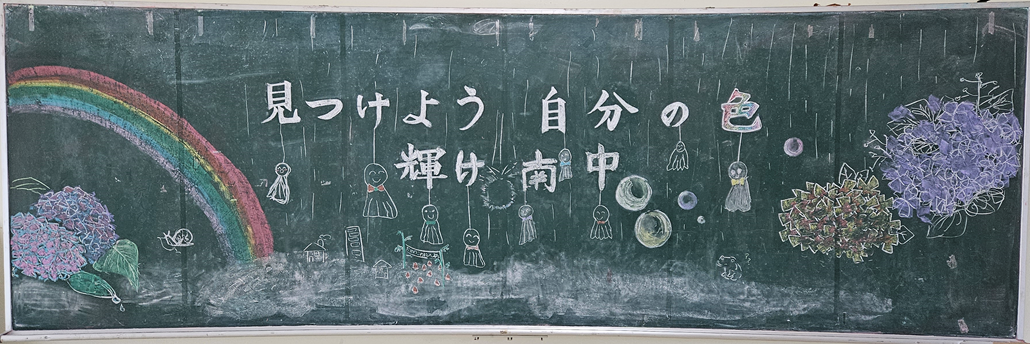 見つけよう 自分の色
輝け 南中